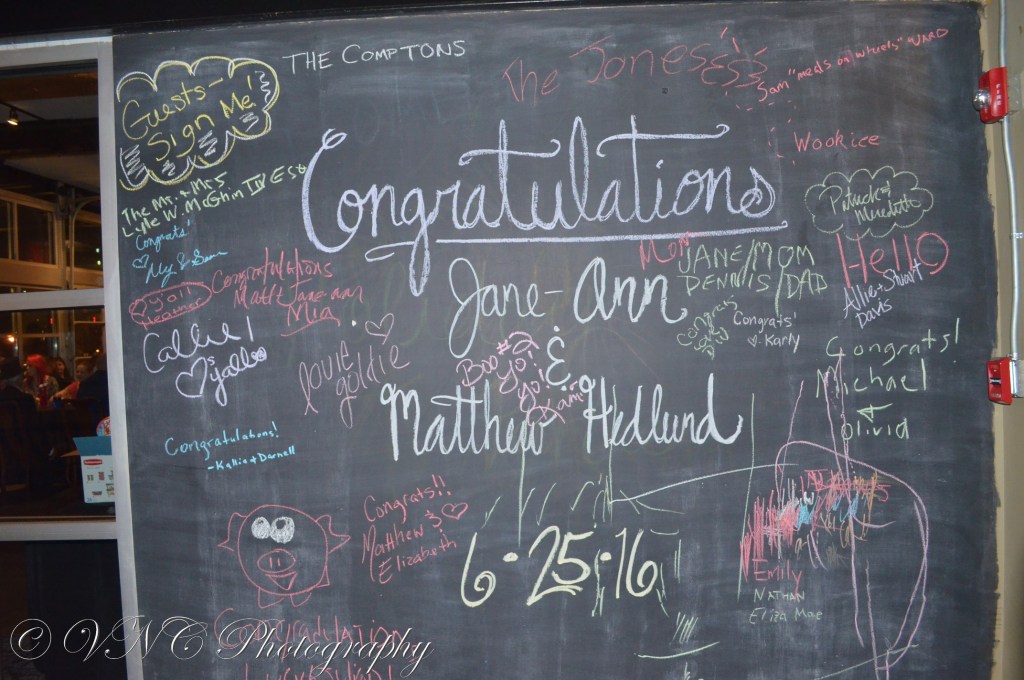 THE COMPTONS
The Joneses
Sam "meals on wheels" WARD
Guests-
Sign Me!
Wookiee
The Mr. & Mrs
Lyle W. McGhin IV Est
Congratulations
Patrick &
Meredith
Congrats!
Jane-Ann
Mom
JANE/MOM
DENNIS/DAD
HELLO
Allie + Stuart
Davis
Congratulations
Matt & Jane ann
Mia
Callie!
♡s yall
Louie
goldie
Boo #2
Yo!
Yo!
Kami
&
Congrats
Congrats!
♡ Karly
Congrats!
Michael
Olivia
Matthew Hedlund
Congratulations!
-Kallie + Darnell
Congrats!!
Matthew & ♡
Elizabeth
6·25·16
Emily
NATHAN
Eliza Mae
Congradulation
© VNC Photography